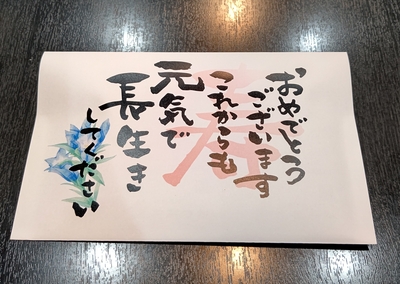 おめでとう
ございます
これからも
元気で
長生き
してください
寿